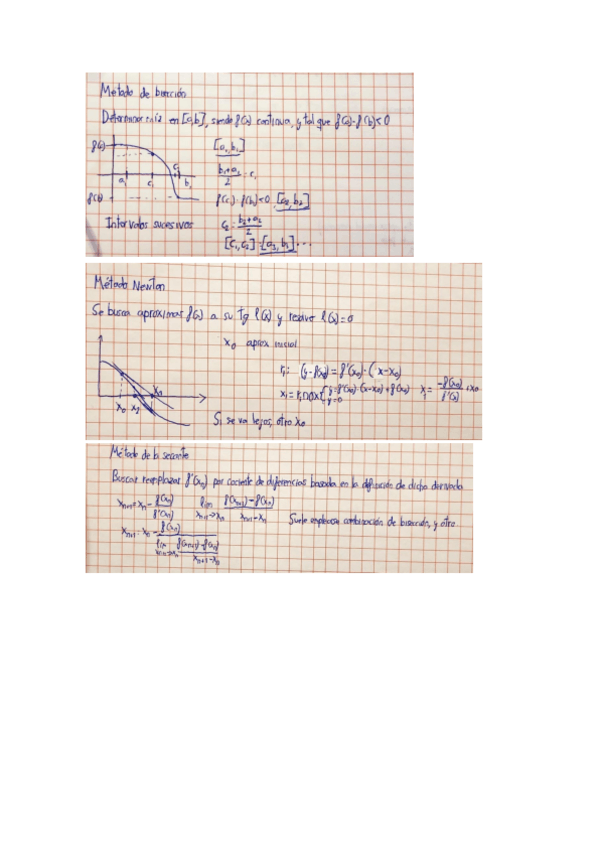 Método de bisección
Determinar raíz en [a,b], siendo f(x) continua, y tal que f(a)·f(b)<0
f(a)
[a, b,]
a, c, c, b,
b₁+a₁/2 = c₁
f(b)
f(c₁)·f(b₁)<0 [a₂,b₂]
Intervalos sucesivos
c₂ = b₂+a₂/2
[c₁,c₂] = [a₃,b₃]...
Método Newton
Se busca aproximar f(x) a su tg l(x) y resolver l(x)=0
x₀ aprox inicial
r₁: (y-f(x₀)) = f'(x₀)·(x-x₀)
x₁ = r₁∩OX { y=f'(x₀)·(x-x₀)+f(x₀) x₁ = -f(x₀)/f'(x₀) + x₀
y=0
x₀
Si se va lejos, otro x₀
Método de la secante
Buscar reemplazar f'(xₙ) por cociente de diferencias basada en la definición de dicha derivada
xₙ₊₁ = xₙ - f(xₙ)/f'(xₙ) lim xₙ₊₁→xₙ f(xₙ₊₁)-f(xₙ)/xₙ₊₁-xₙ Suele emplearse combinación de bisección, y otro
xₙ₊₁ = xₙ - f(xₙ)/lim xₙ₊₁→xₙ f(xₙ₊₁)-f(xₙ)/xₙ₊₁-xₙ